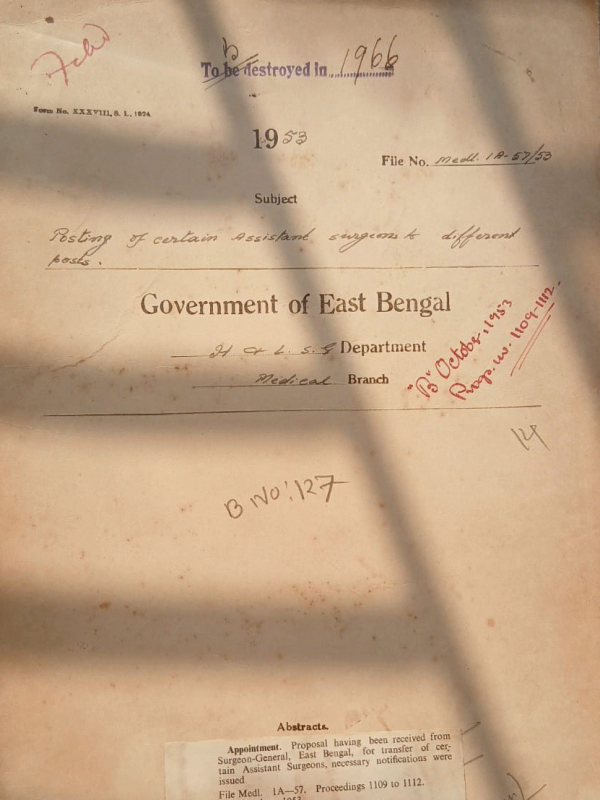 B
To be destroyed in 1966
Form No. XXXVIII, S. L., 1934.
1953
File No. Medl. 1A-57/53
Subject
Posting of certain Assistant surgeons to different
posts.
Government of East Bengal
H & L. S. G Department
Medical Branch
"B" October, 1953
Progs. no. 1109-1112.
14
B NO: 127
Abstracts.
Appointment. Proposal having been received from
Surgeon-General, East Bengal, for transfer of cer-
tain Assistant Surgeons, necessary notifications were
issued
File Medl. 1A—57. Proceedings 1109 to 1112.
1953